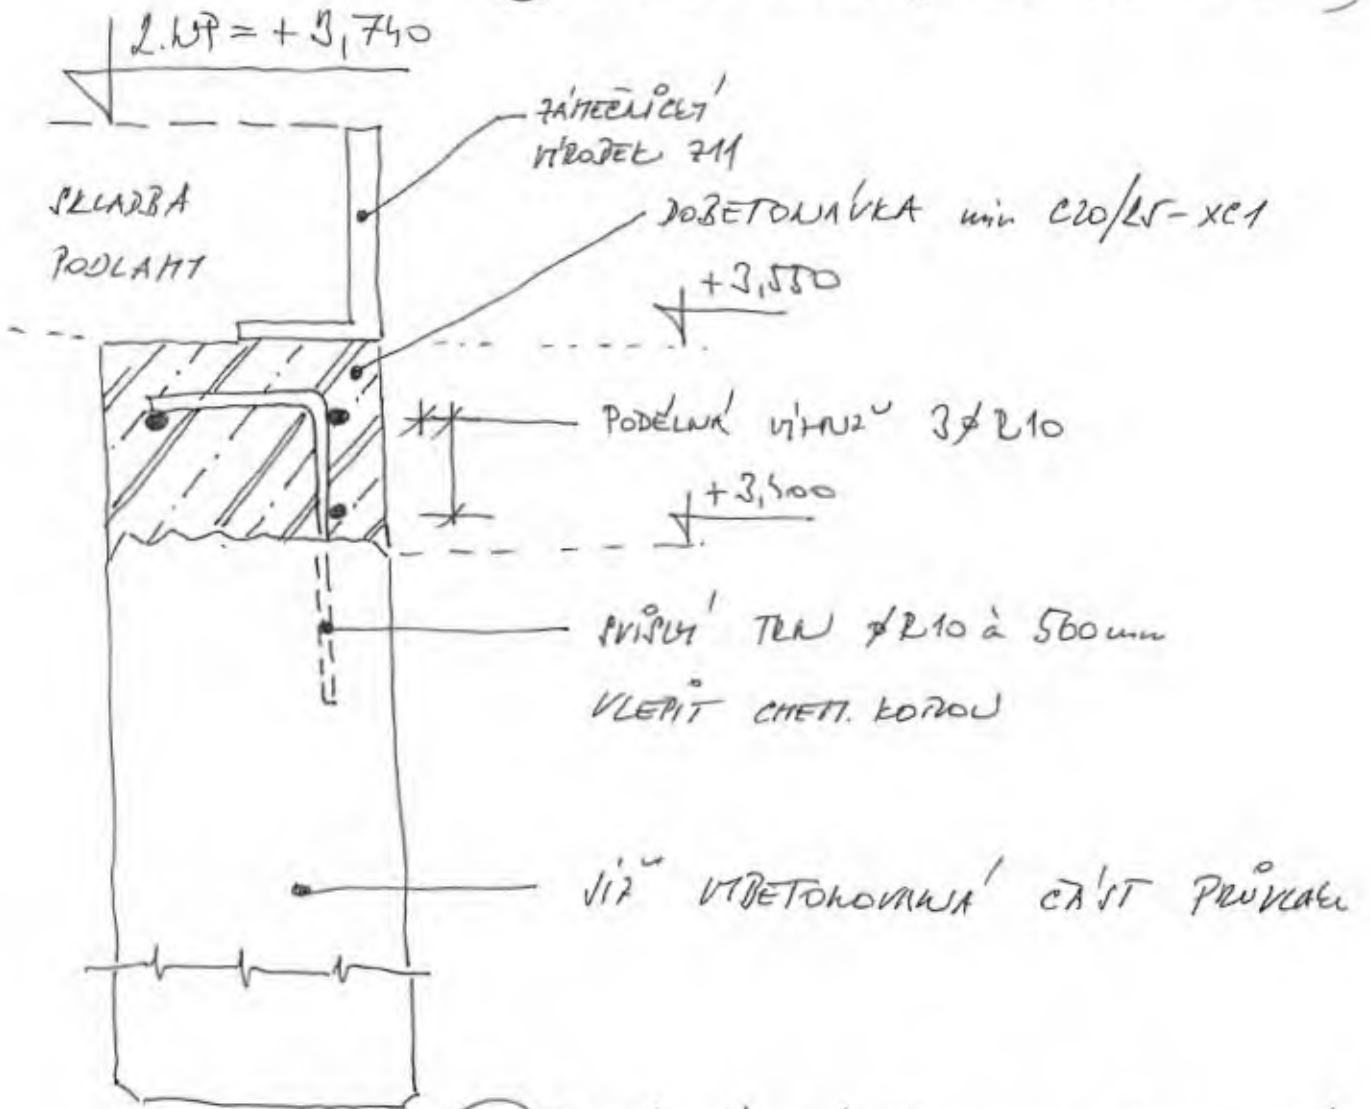 2.NP = +3,740
ZÁMEČNICKÝ
VÝROBEK Z11
SKLADBA
PODLAHY
DOBETONÁVKA min C20/25-XC1
+3,550
PODÉLNÁ VÝZTUŽ 3ØR10
+3,400
SVISLÝ TRN ØR10 à 500mm
VLEPIT CHEM. KOTVOU
JIŽ VYBETONOVANÁ ČÁST PRŮVLAKU